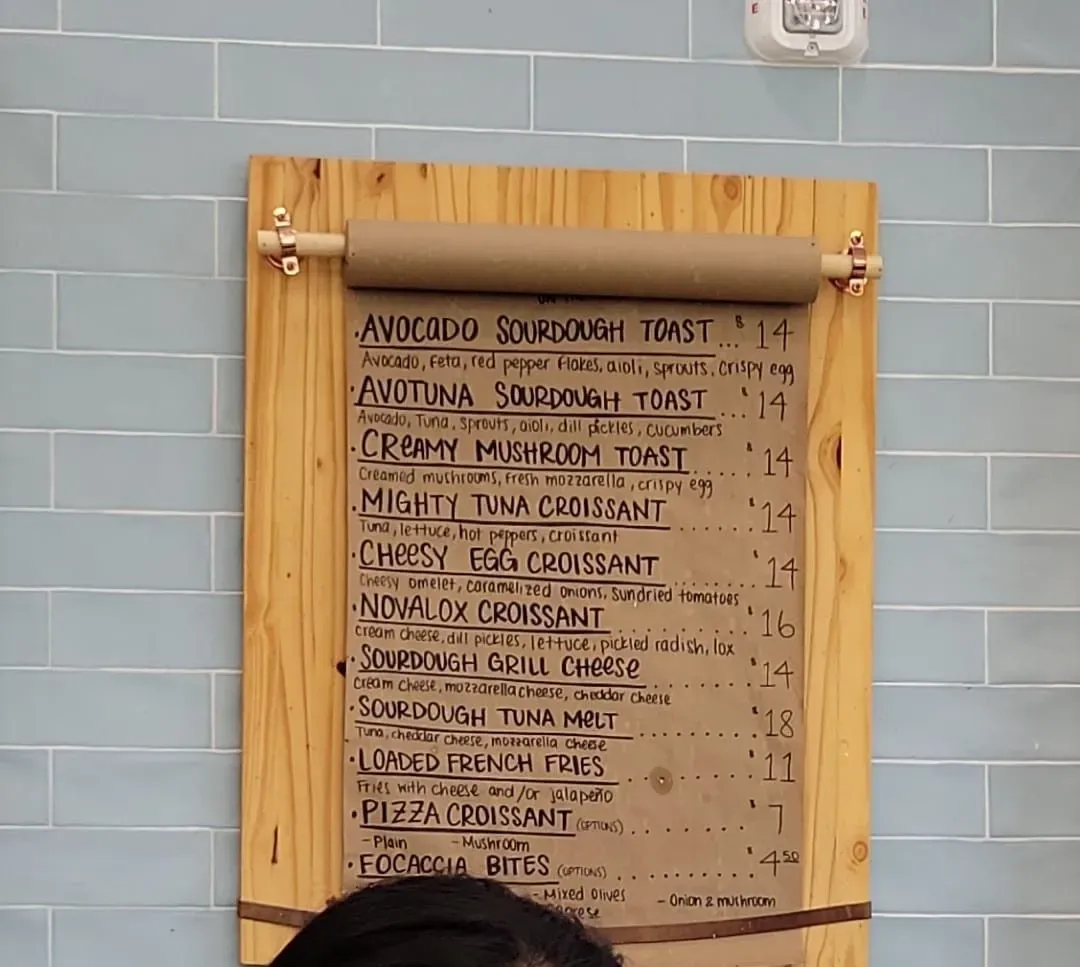 • AVOCADO SOURDOUGH TOAST ... $ 14
Avocado, Feta, red pepper flakes, aioli, sprouts, crispy egg
• AVOTUNA SOURDOUGH TOAST ... $ 14
Avocado, Tuna, sprouts, aioli, dill pickles, cucumbers
• CREAMY MUSHROOM TOAST .... $ 14
Creamed mushrooms, fresh mozzarella, crispy egg
• MIGHTY TUNA CROISSANT ...... $ 14
Tuna, lettuce, hot peppers, croissant
• CHEESY EGG CROISSANT ........ $ 14
Cheesy omelet, caramelized onions, sundried tomatoes
• NOVALOX CROISSANT ......... $ 16
cream cheese, dill pickles, lettuce, pickled radish, lox
• SOURDOUGH GRILL CHEESE ....... $ 14
Cream cheese, mozzarella cheese, cheddar cheese
• SOURDOUGH TUNA MELT ........ $ 18
Tuna, cheddar cheese, mozzarella cheese
• LOADED FRENCH FRIES ........ $ 11
Fries with cheese and/or jalapeño
• PIZZA CROISSANT (OPTIONS) ....... $ 7
- Plain - Mushroom
• FOCACCIA BITES (OPTIONS) ......... $ 4 50
- Mixed Olives - Onion & mushroom